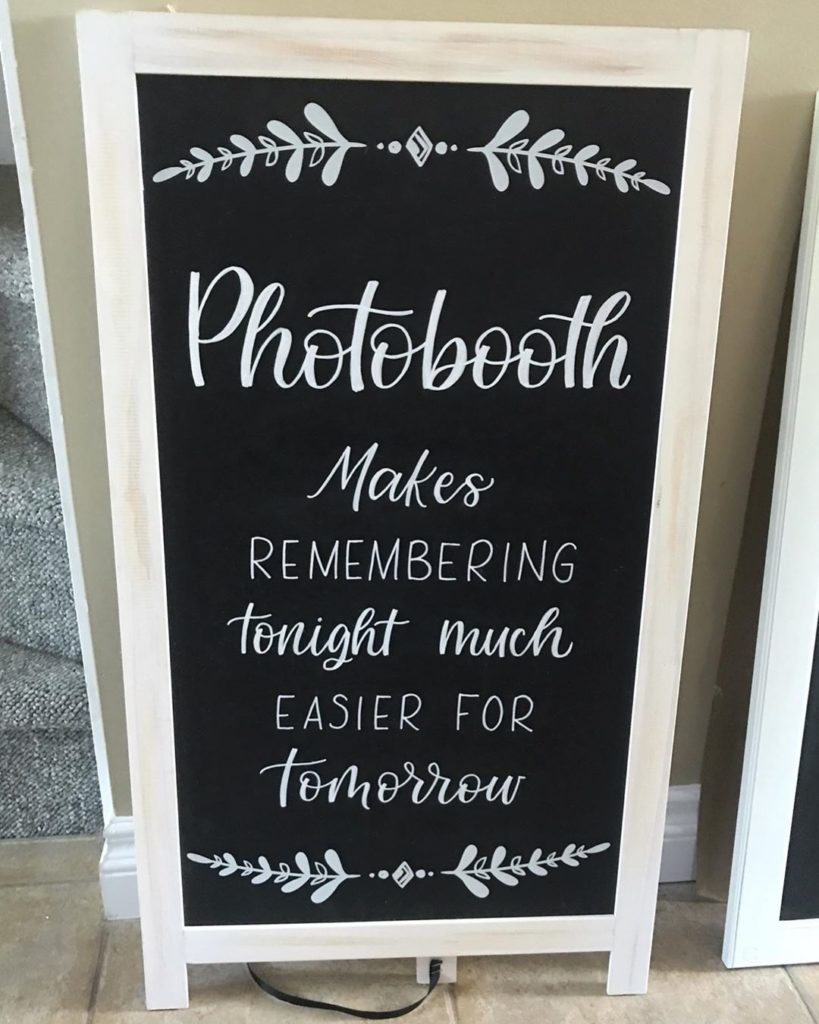 Photobooth
Makes
REMEMBERING
tonight much
EASIER FOR
tomorrow